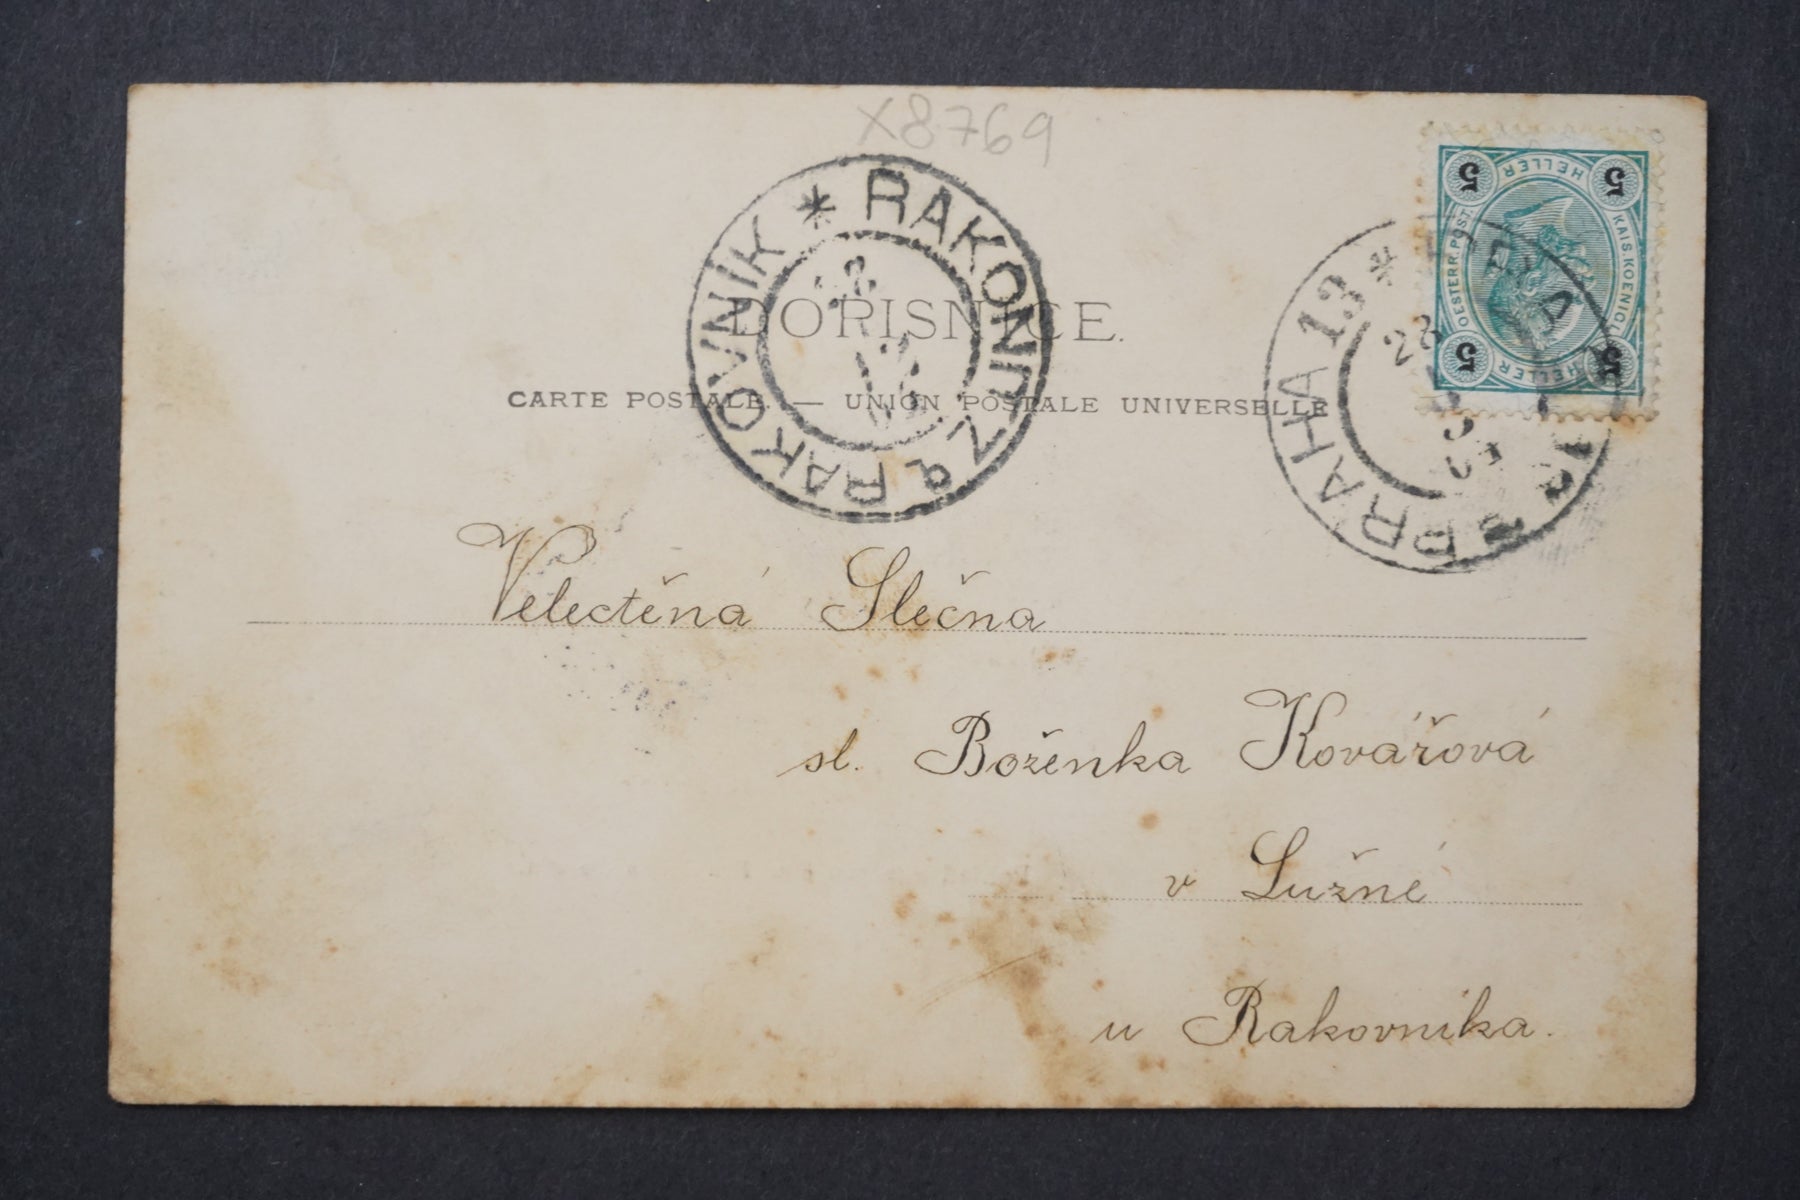 X8769
DOPISNICE.
CARTE POSTALE. — UNION POSTALE UNIVERSELLE
* RAKONITZ & RAKOVNÍK
PRAHA 13 *
5 HELLER 5
OESTERR. POST. KAIS. KOENIGL.
5 HELLER 5
Velectěná Slečna
sl. Boženka Kovářová
v Lužné
u Rakovníka.